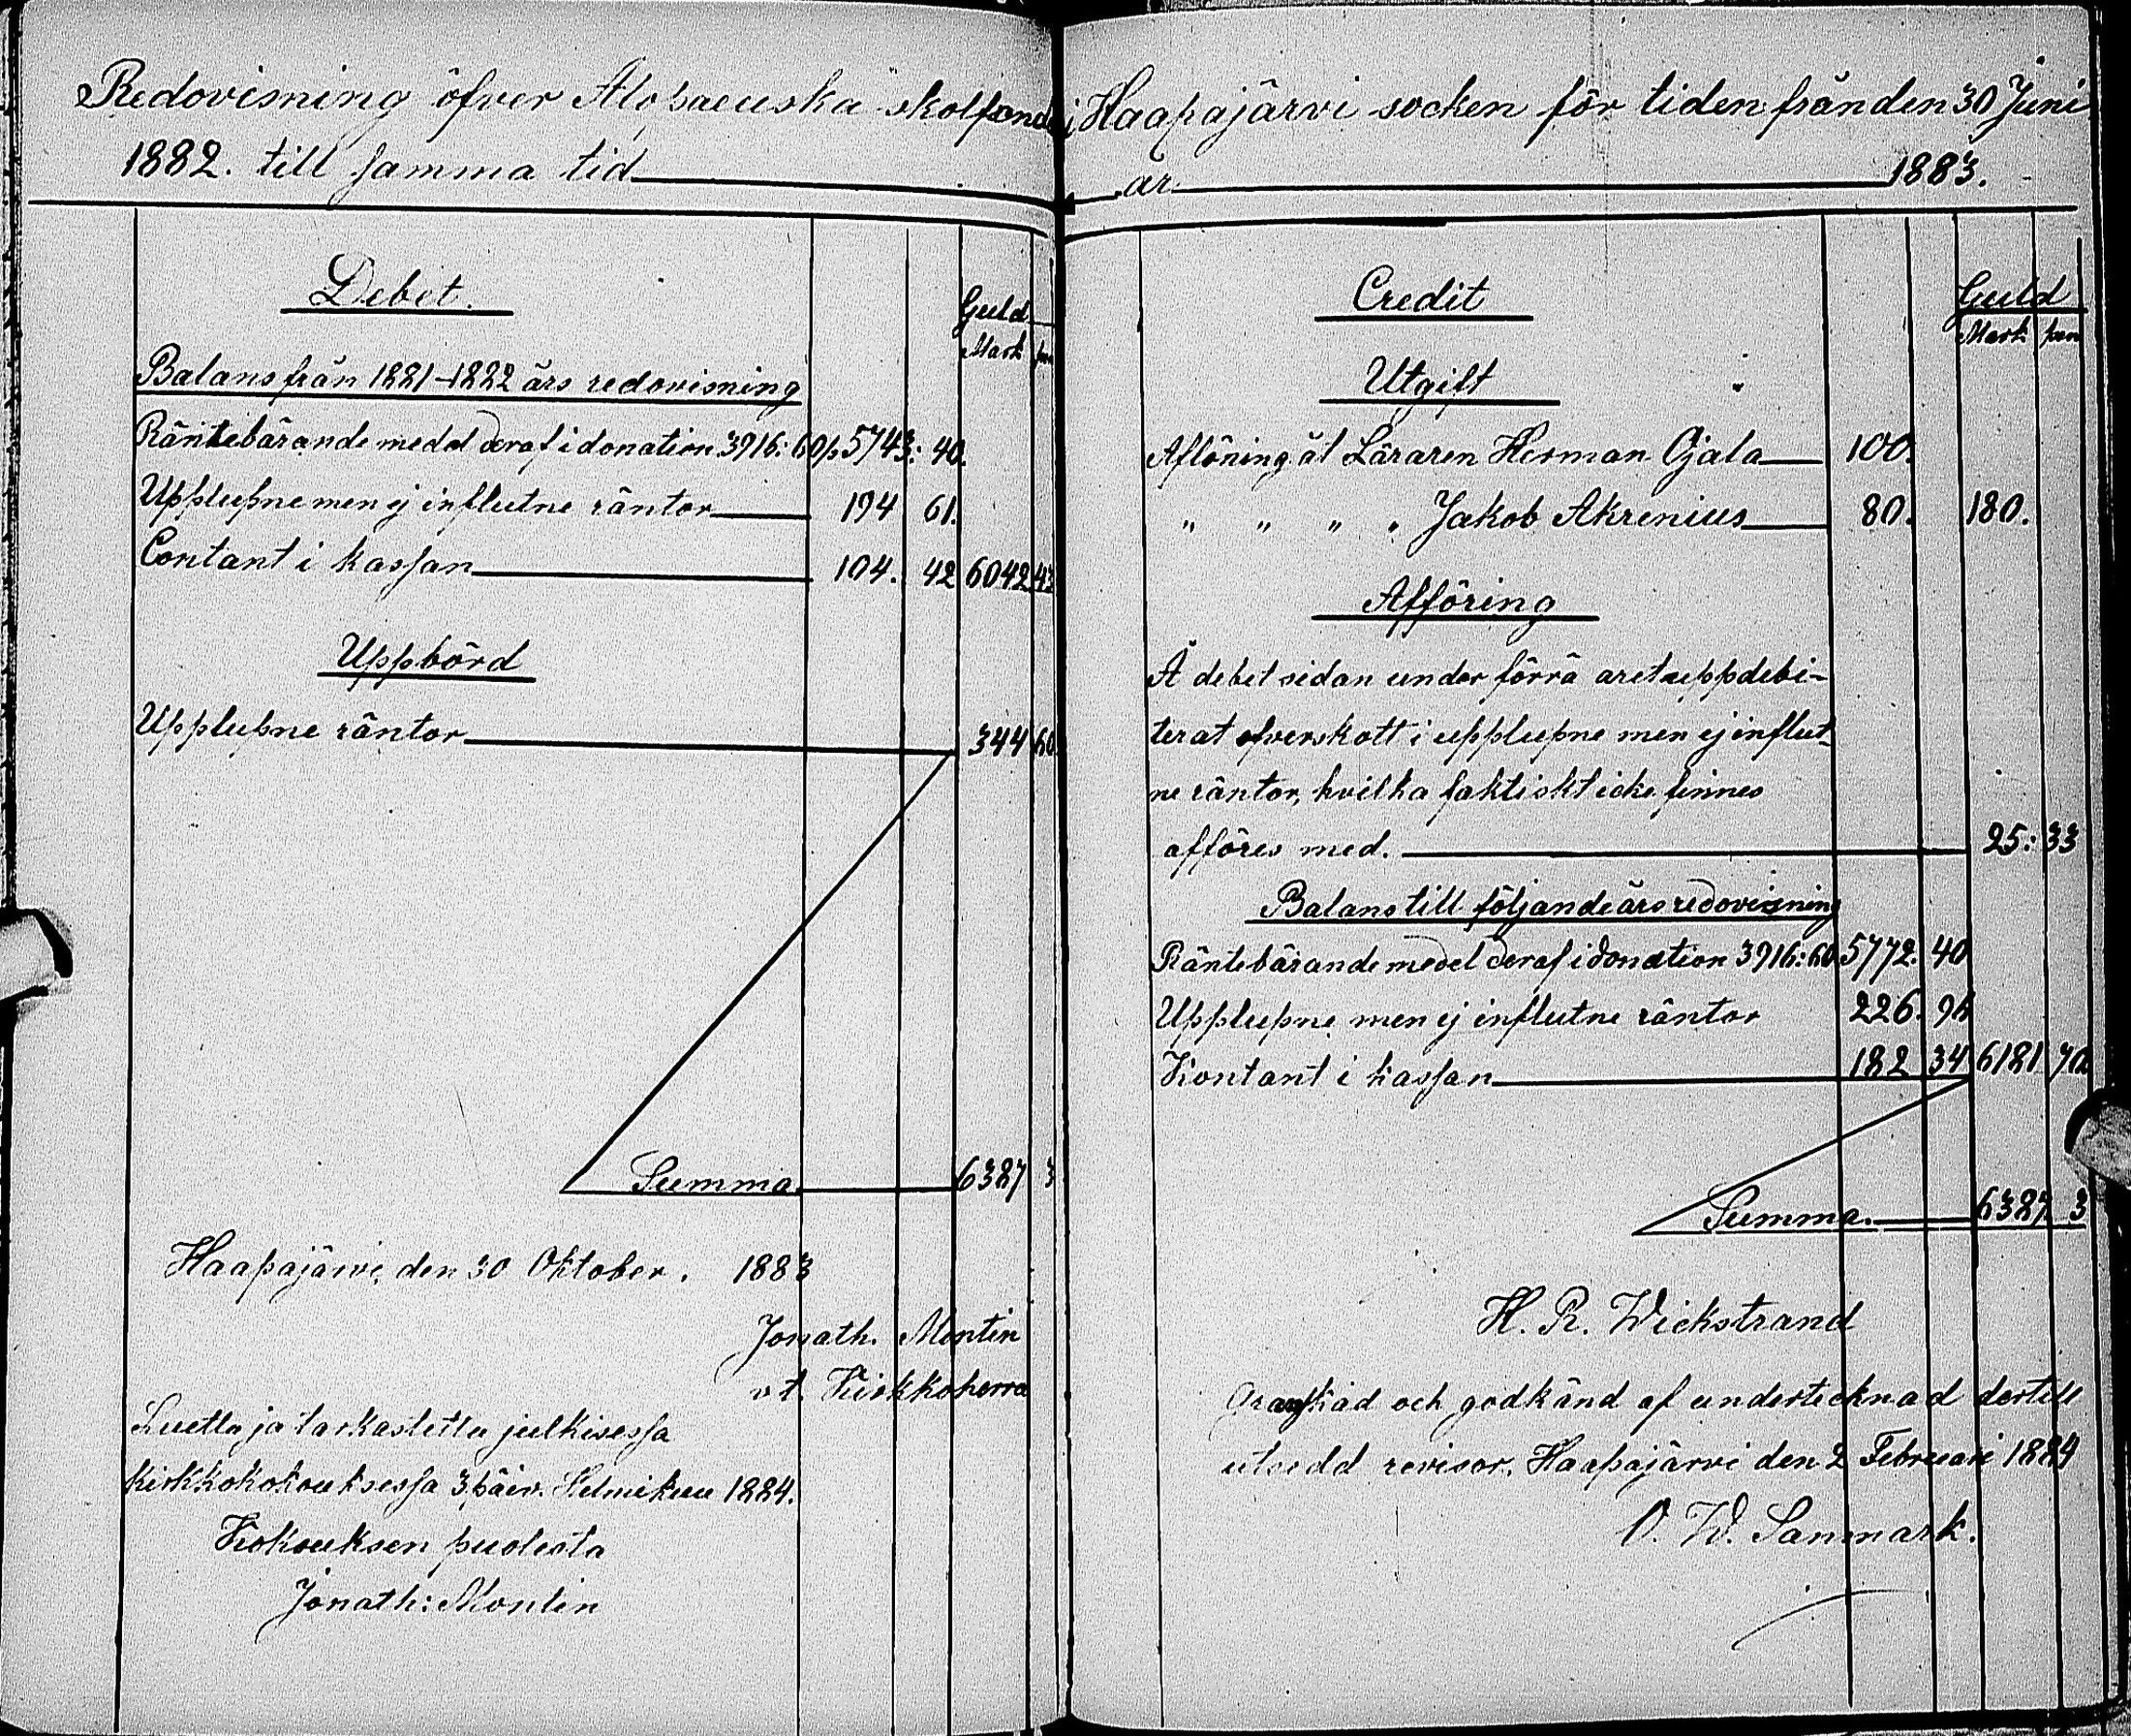 Redovisning öfver Alopaeuska skolfond i Haapajärvi socken för tiden från den 30 Juni
1882. till samma tid år 1883.
Debet.
Guld
Mark pen
Balans från 1881-1882 års redovisning
Räntebärande medel deraf i donation 3916:60 p 5743: 40.
Upplupne men ej influtne räntor 194 61.
Contant i kassan 104. 42 6042 43
Uppbörd
Upplupne räntor 344 60
Summa 6387 3
Haapajärvi, den 30 Oktober. 1883
Jonath. Montin
v t. Kirkkoherra
Luettu ja tarkastettu julkisessa
kirkkokokouksessa 3 päiv. Helmikuu 1884.
Kokouksen puolesta
Jonath: Montin
Credit
Guld
Mark pen
Utgift
Aflöning åt Läraren Herman Ojala 100.
" " " " Jakob Akrenius 80. 180.
Afföring
Å debet sidan under förra året uppdebi-
terat öfverskott i upplupne men ej influt-
ne räntor, hvilka faktiskt icke finnes
afföres med. 25: 33
Balans till följande års redovisning
Räntebärande medel deraf i donation 3916:60 5772. 40
Upplupne men ej influtne räntor 226. 96
Kontant i kassan 182 34 6181 70
Summa. 6387. 3
H. R. Wickstrand
Granskad och godkänd af undertecknad dertill
utsedd revisor. Haapajärvi den 2 Februari 1884
O. W. Sanmark.